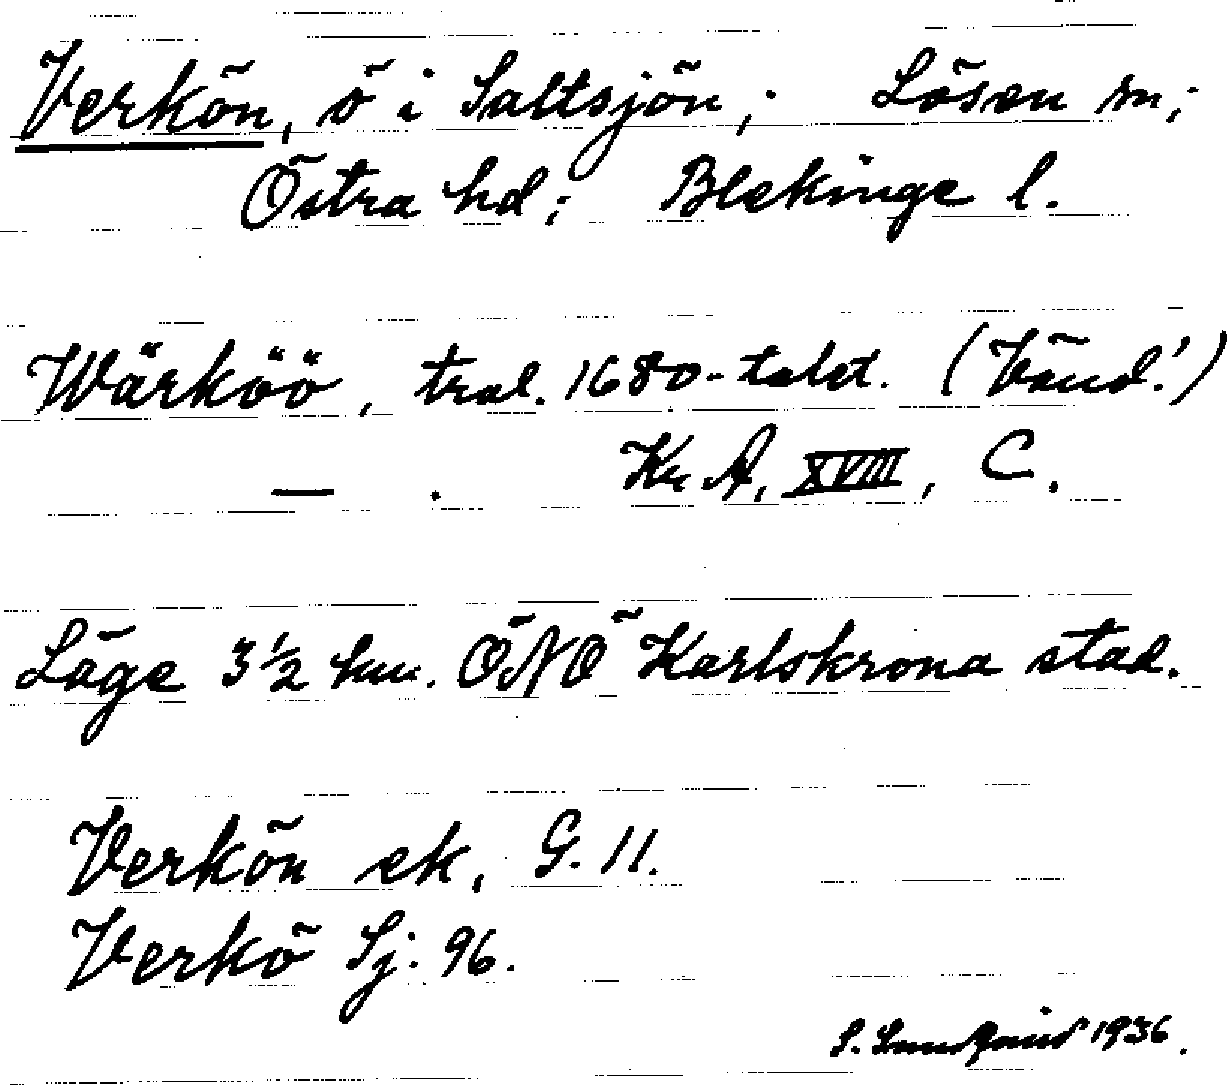 Verkön, ö i Saltsjön; Lösen sn;
Östra hd; Blekinge l.
Wärköö, trol. 1680-talet. (Vänd!)
— . Kr A, XVIII, C.
Läge 3 1/2 km. ÖNÖ Karlskrona stad.
Verkön ek, G. 11.
Verkö Sj. 96.
S. 1936.